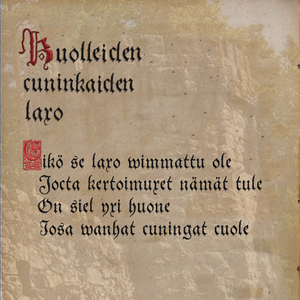 Kuolleiden
cuninkaiden
laxo
Eikö se laxo wimmattu ole
Jocta kertoimuxet nämät tule
On siel yxi huone
Josa wanhat cuningat cuole